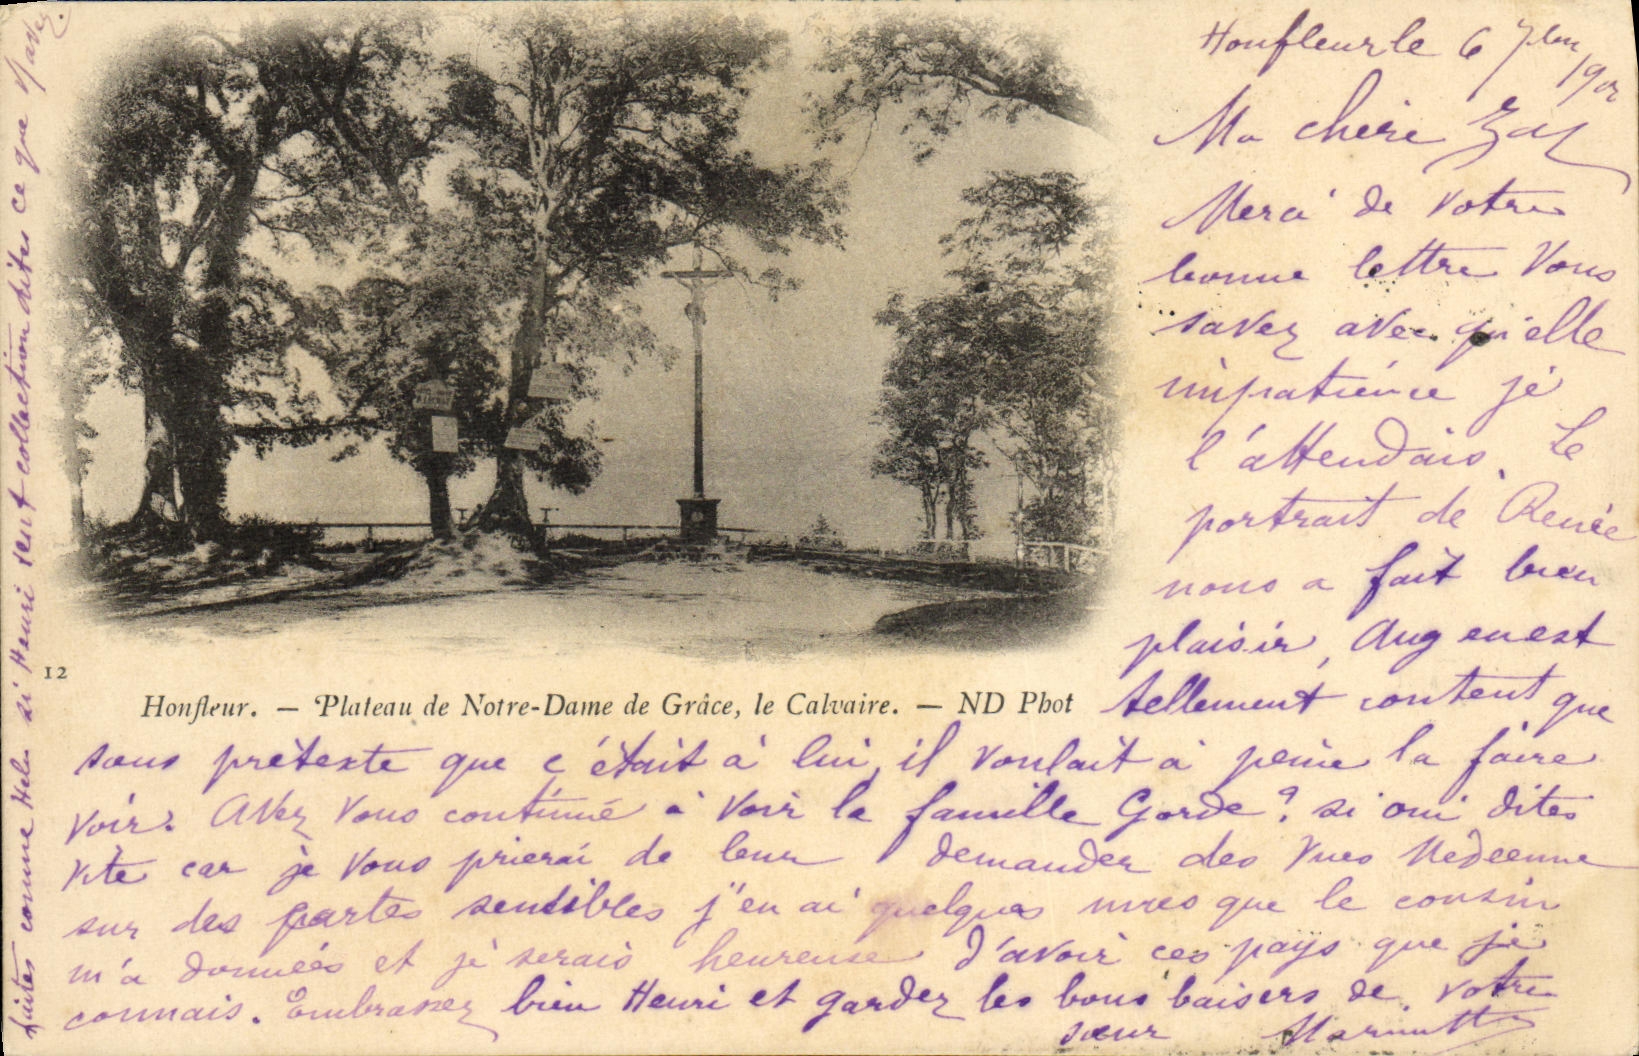 Honfleur le 6 7bre 1902
Ma chère
Merci de votre
bonne lettre Vous
savez avec qu'elle
impatience je
l'attendais. Le
portrait de Renée
nous a fait bien
plaisir, Aug en est
tellement content que
12
Honfleur. — Plateau de Notre-Dame de Grâce, le Calvaire. — ND Phot
sous prétexte que c'était à lui, il voulait à peine la faire
voir. Avez vous continué à voir la famille Gorde? si oui dites
vite car je vous prierai de leur demander des vues
sur des cartes sensibles j'en ai quelques unes que le cousin
m'a données et je serais heureuse d'avoir ces pays que je
connais. Embrassez bien Henri et gardez les bons baisers de votre
sœur Mariette
faites comme si Henri veut collection dites ce que